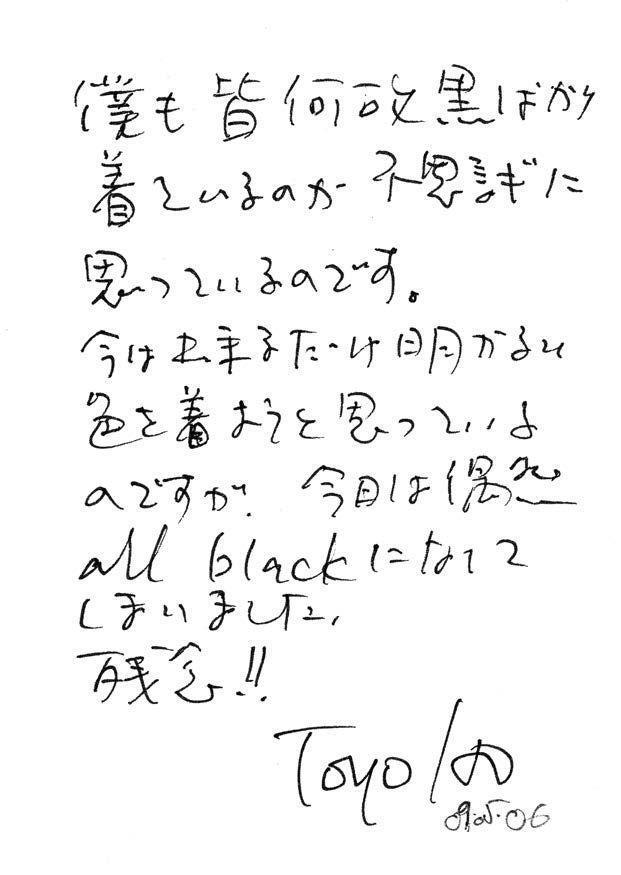 僕も皆何故黒ばかり
着ているのか不思議に
思っているのです。
今は出来るだけ明かるい
色を着ようと思っている
のですが、今日は偶然
all blackになって
しまいました。
残念!!
Toyo Ito
09.05.06